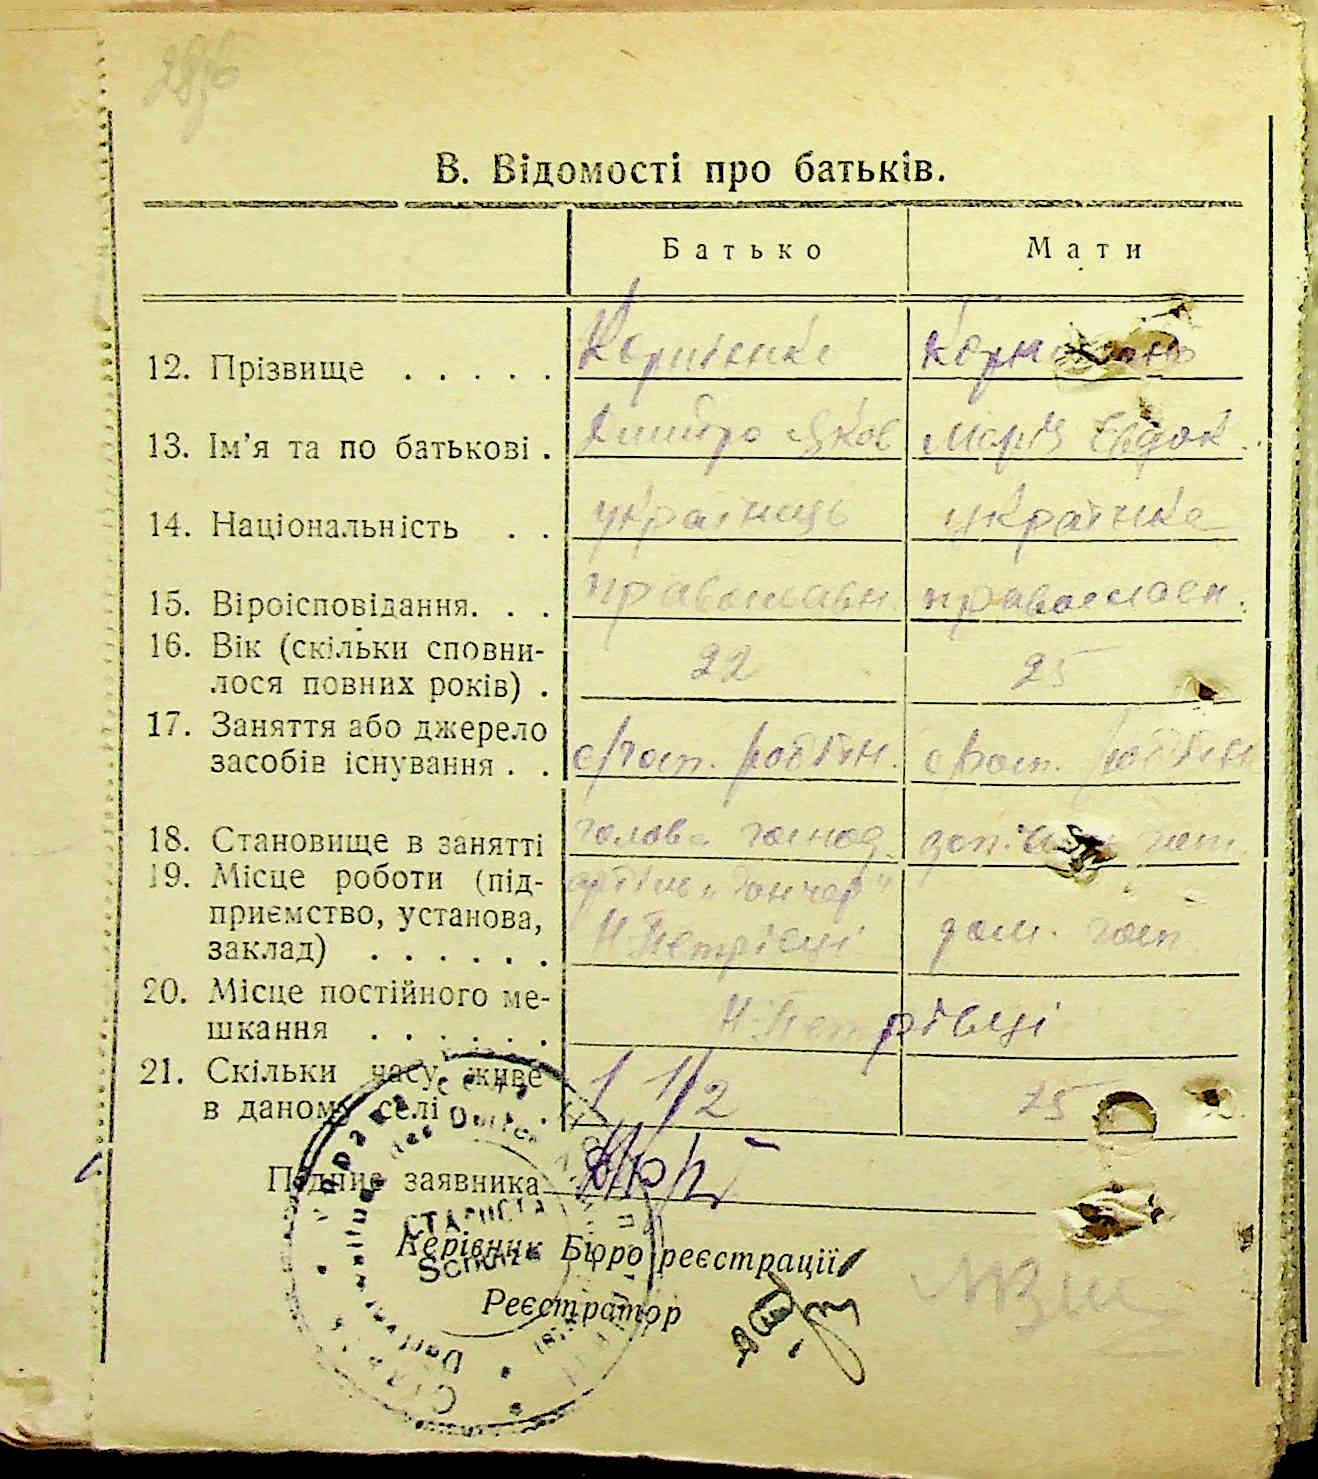 В. Відомості про батьків.
Батько Мати
12. Прізвище . . . . . Корнієнко
13. Ім'я та по батькові . Дмитро Яков Марія Евдок.
14. Національність . . українець українка
15. Віроісповідання. . . православн. православн.
16. Вік (скільки сповни-
лося повних років) . 22 25
17. Заняття або джерело
засобів існування . . с/госп. робітн. с/госп. робітн
18. Становище в занятті голова господ.
19. Місце роботи (під- артіль
приємство, установа, Н-Петрівці дом. госп.
заклад) . . . . . .
20. Місце постійного ме-
шкання . . . . . . Н-Петрівці
21. Скільки часу живе
в даному селі 1 1/2 25
Підпис заявника
Керівник Бюро реєстрації
Реєстратор